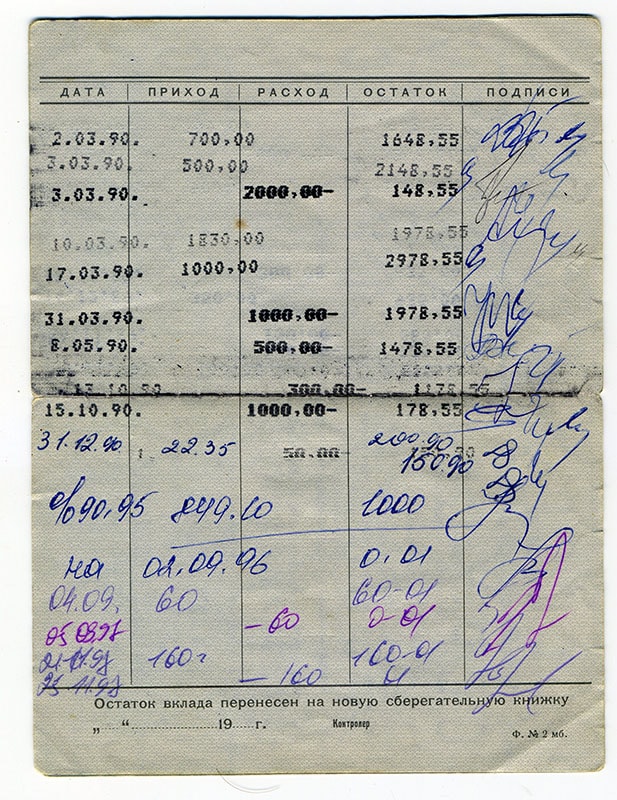 ДАТА ПРИХОД РАСХОД ОСТАТОК ПОДПИСИ
2.03.90. 700,00 1648,55
3.03.90. 500,00 2148,55
3.03.90. 2000,00- 148,55
10.03.90. 1830,00 1978,55
17.03.90. 1000,00 2978,55
31.03.90. 1000,00- 1978,55
8.05.90. 500,00- 1478,55
13 10 90 300,00- 1178 55
15.10.90. 1000,00- 178,55
31.12.90 22.35 200.90
50.00 150.90
%90.95 849.10 1000
на 02.09.96 0.01
04.09. 60 60-01
05 09 97 -60 0-01
21-11.97 160 160-01
23.11.97 -160 01
Остаток вклада перенесен на новую сберегательную книжку
„ “ 19 г. Контролер
Ф. № 2 мб.